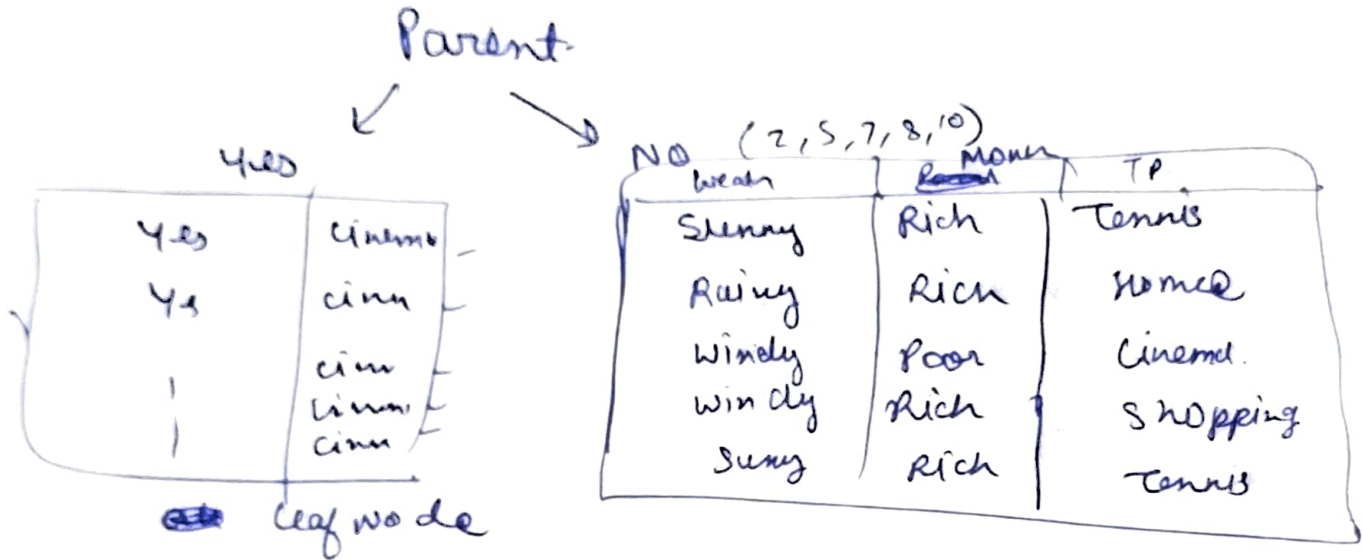 Parent
Yes
Yes cinema
Yes cinm
cinm
cinm
cinm
leaf node
NO (2, 5, 7, 8, 10)
Weath Money TP
Sunny Rich Tennis
Rainy Rich Home
Windy Poor Cinema.
Windy Rich Shopping
Sunny Rich Tennis